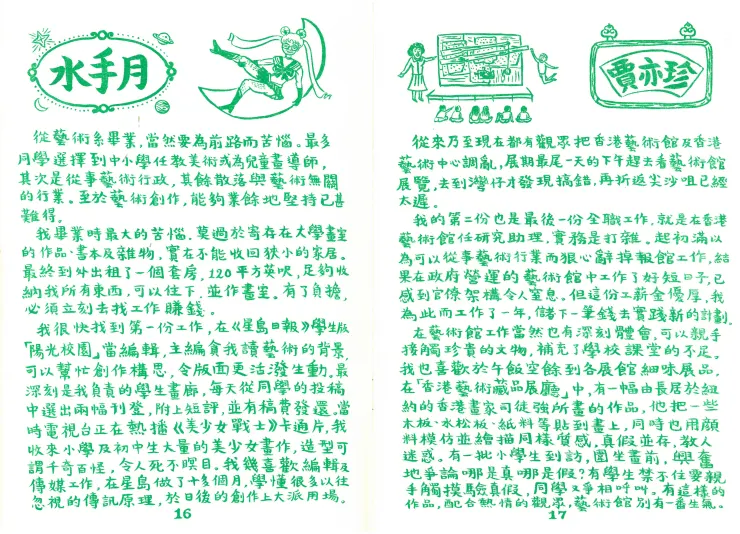 水手月
從藝術系畢業，當然要為前路而苦惱。最多
同學選擇到中小學任教美術或為兒童畫導師，
其次是從事藝術行政，其餘散落與藝術無關
的行業。至於藝術創作，能夠業餘地堅持已甚
難得。
我畢業時最大的苦惱，莫過於寄存在大學畫室
的作品、書本及雜物，實在不能收回狹小的家居。
最終到外出租了一個套房，120平方英呎，足夠收
納我所有東西，可以住下，並作畫室。有了負擔，
必須立刻去找工作賺錢。
我很快找到第一份工作，在《星島日報》學生版
「陽光校園」當編輯，主編貪我讀藝術的背景，
可以幫忙創作構思，令版面更活潑生動。最
深刻是我負責的學生畫廊，每天從同學的投稿
中選出兩幅刊登，附上短評，並有稿費發還。當
時電視台正在熱播《美少女戰士》卡通片，我
收來小學及初中生大量的美少女畫作，造型可
謂千奇百怪，令人死不瞑目。我幾喜歡編輯及
傳媒工作，在星島做了十多個月，學懂很多以往
忽視的傳訊原理，於日後的創作上大派用場。
16
賈亦珍
從來乃至現在都有觀眾把香港藝術館及香港
藝術中心調亂，展期最尾一天的下午趕去看藝術館
展覽，去到灣仔才發現搞錯，再折返尖沙咀已經
太遲。
我的第二份也是最後一份全職工作，就是在香港
藝術館任研究助理，實務是打雜。起初滿以
為可以從事藝術行業而狠心辭掉報館工作，結
果在政府營運的藝術館中工作了好短日子，已
感到官僚架構令人窒息。但這份工薪金優厚，我
為此而工作了一年，儲下一筆錢去實踐新的計劃。
在藝術館工作當然也有深刻體會，可以親手
接觸珍貴的文物，補充了學校課堂的不足。
我也喜歡於午飯空餘到各展館細味展品，
在「香港藝術藏品展廳」中，有一幅由長居於紐
約的香港畫家司徒強所畫的作品，他把一些
木板、水松板、紙料等貼到畫上，同時也用顏
料模仿並繪描同樣質感。真假並存，教人
迷惑。有一批小學生到訪，圍坐畫前，興奮
地爭論哪是真哪是假？有學生禁不住要親
手觸摸驗真假，同學又爭相呼叫。有這樣的
作品，配合熱情的觀眾，藝術館別有一番生氣。
17